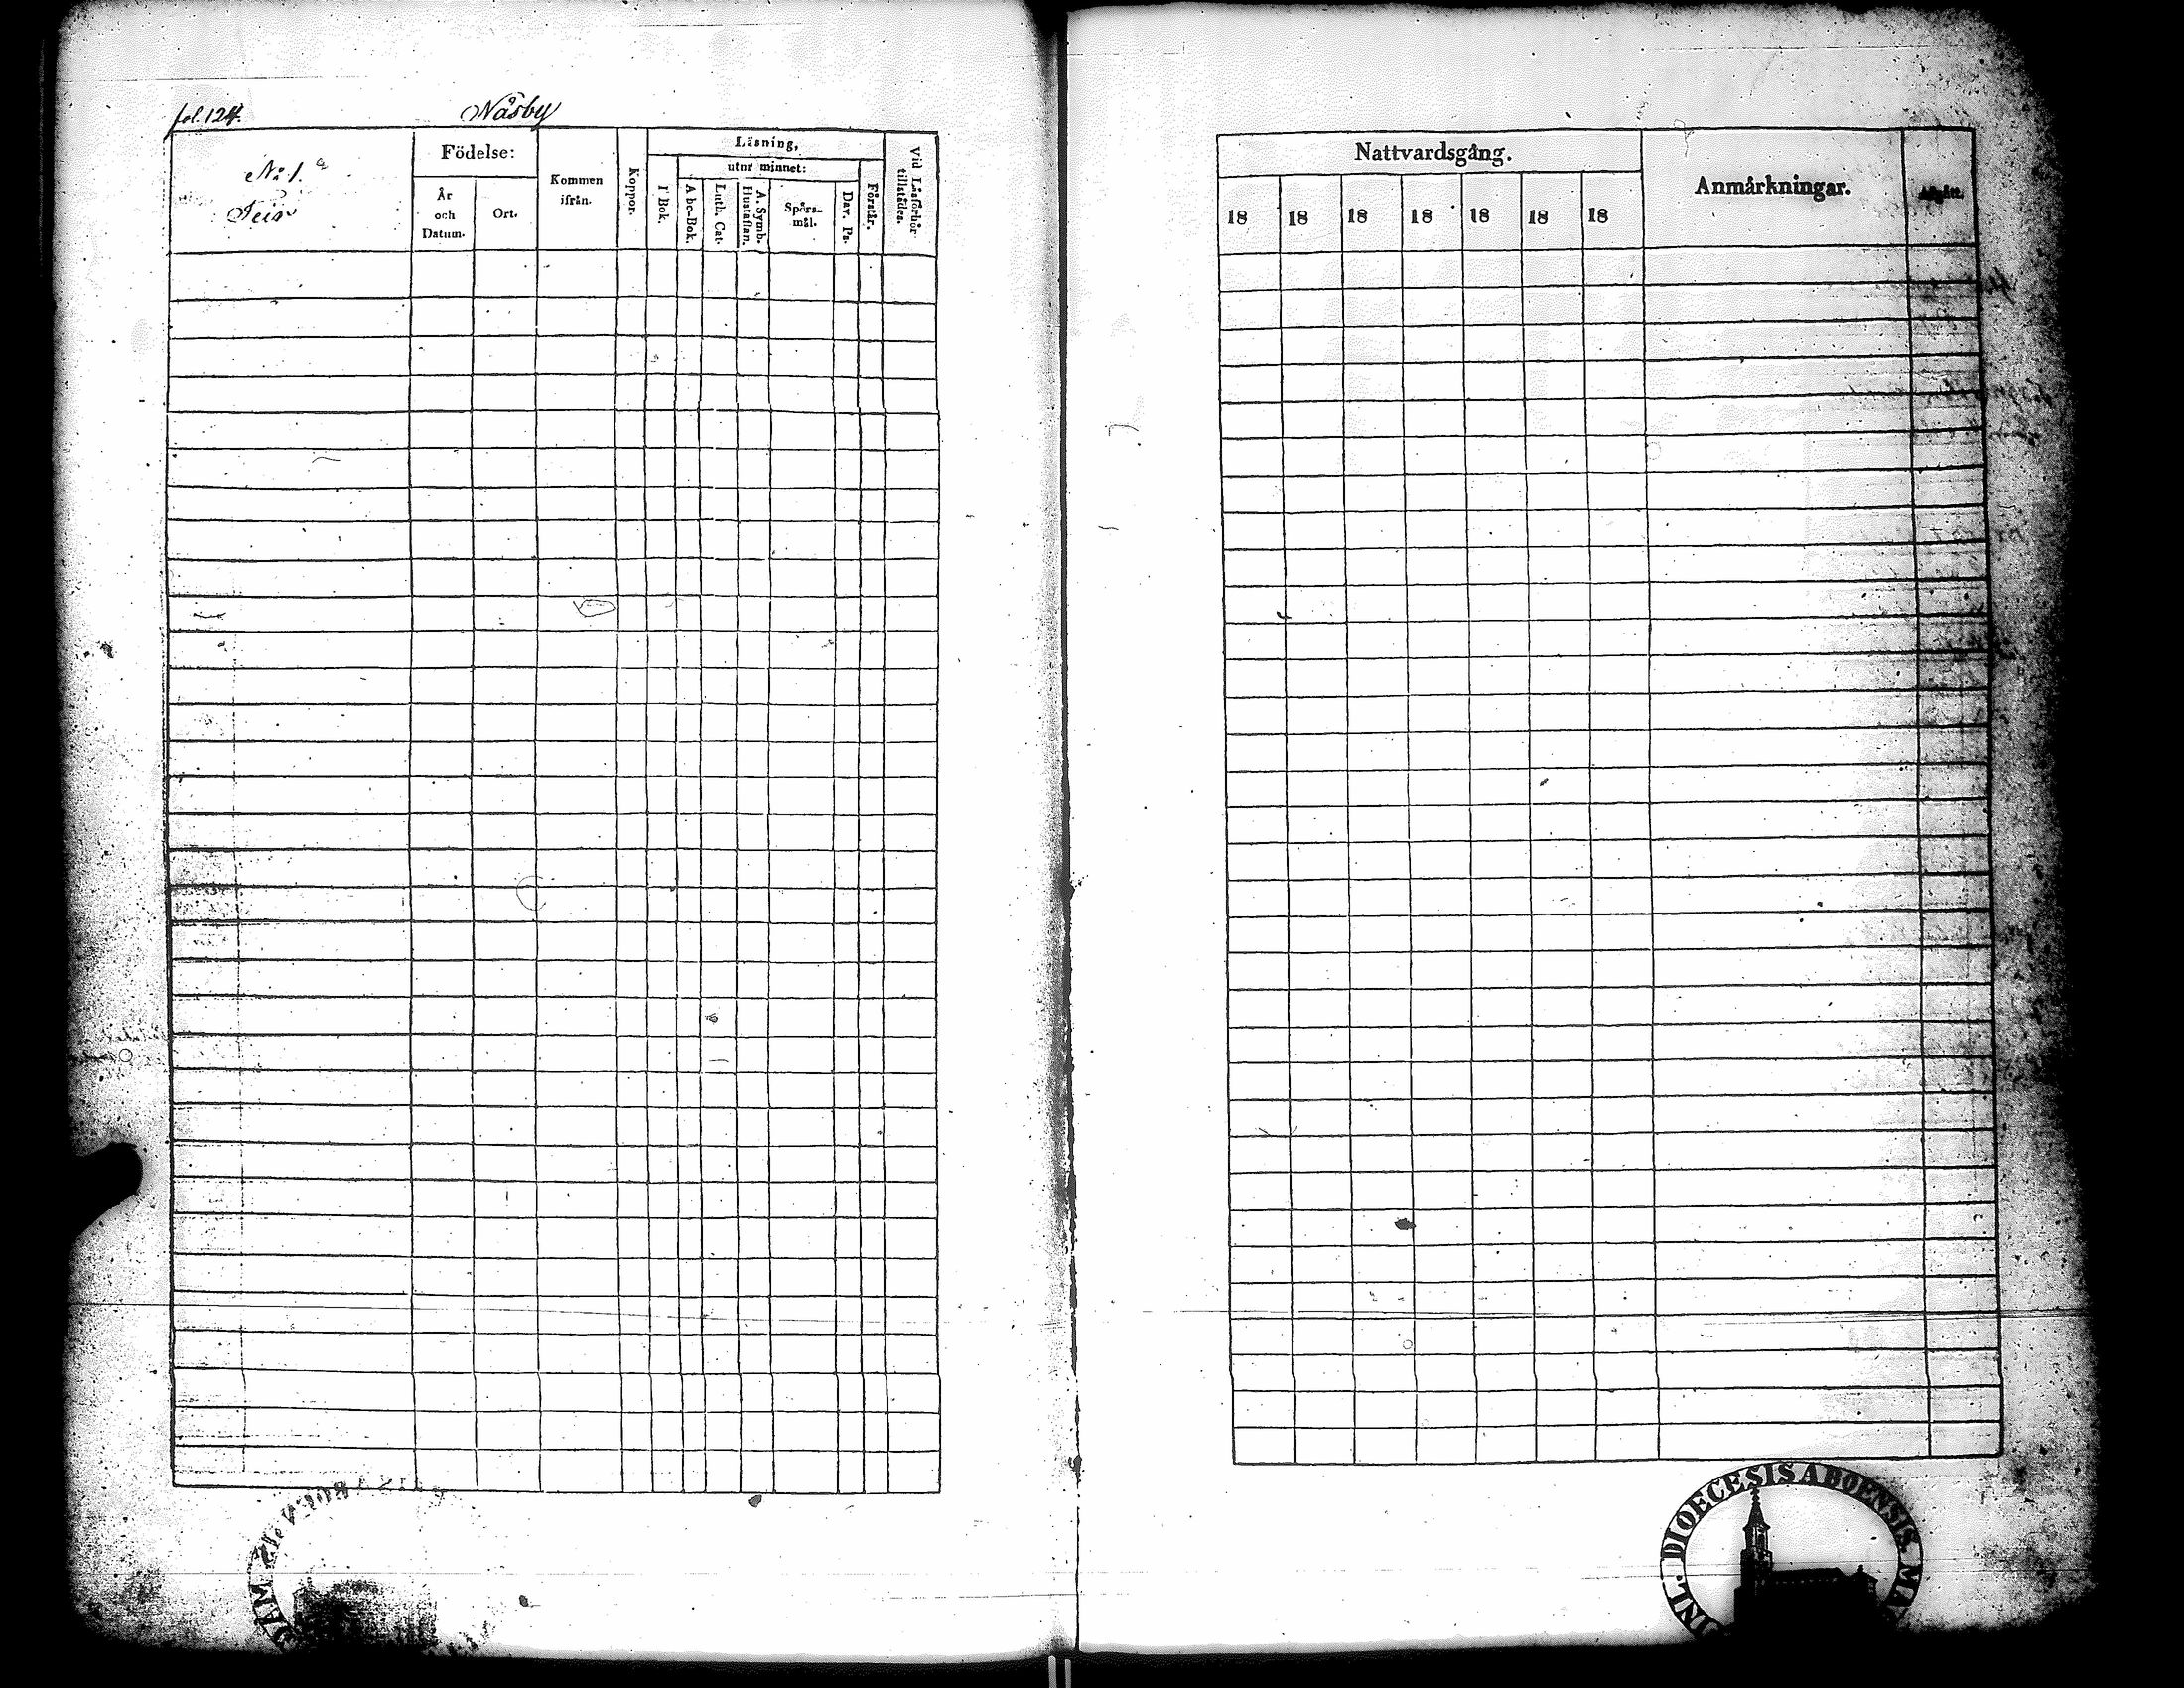 fol. 124.
Nåsby
No 1. a
Födelse:
År
och
Datum.
Ort.
Kommen
ifrån.
Koppor.
Läsning,
utur minnet:
I Bok.
Abc-Bok.
Luth. Cat.
A. Symb.
Hustaflan.
Spörs-
mål.
Dav. Ps.
Förstår.
Vid Läsförhör
tillstädes.
Nattvardsgång.
18 18 18 18 18 18 18
Anmärkningar.
Afgått.
DIOECESIS ABOENSIS.